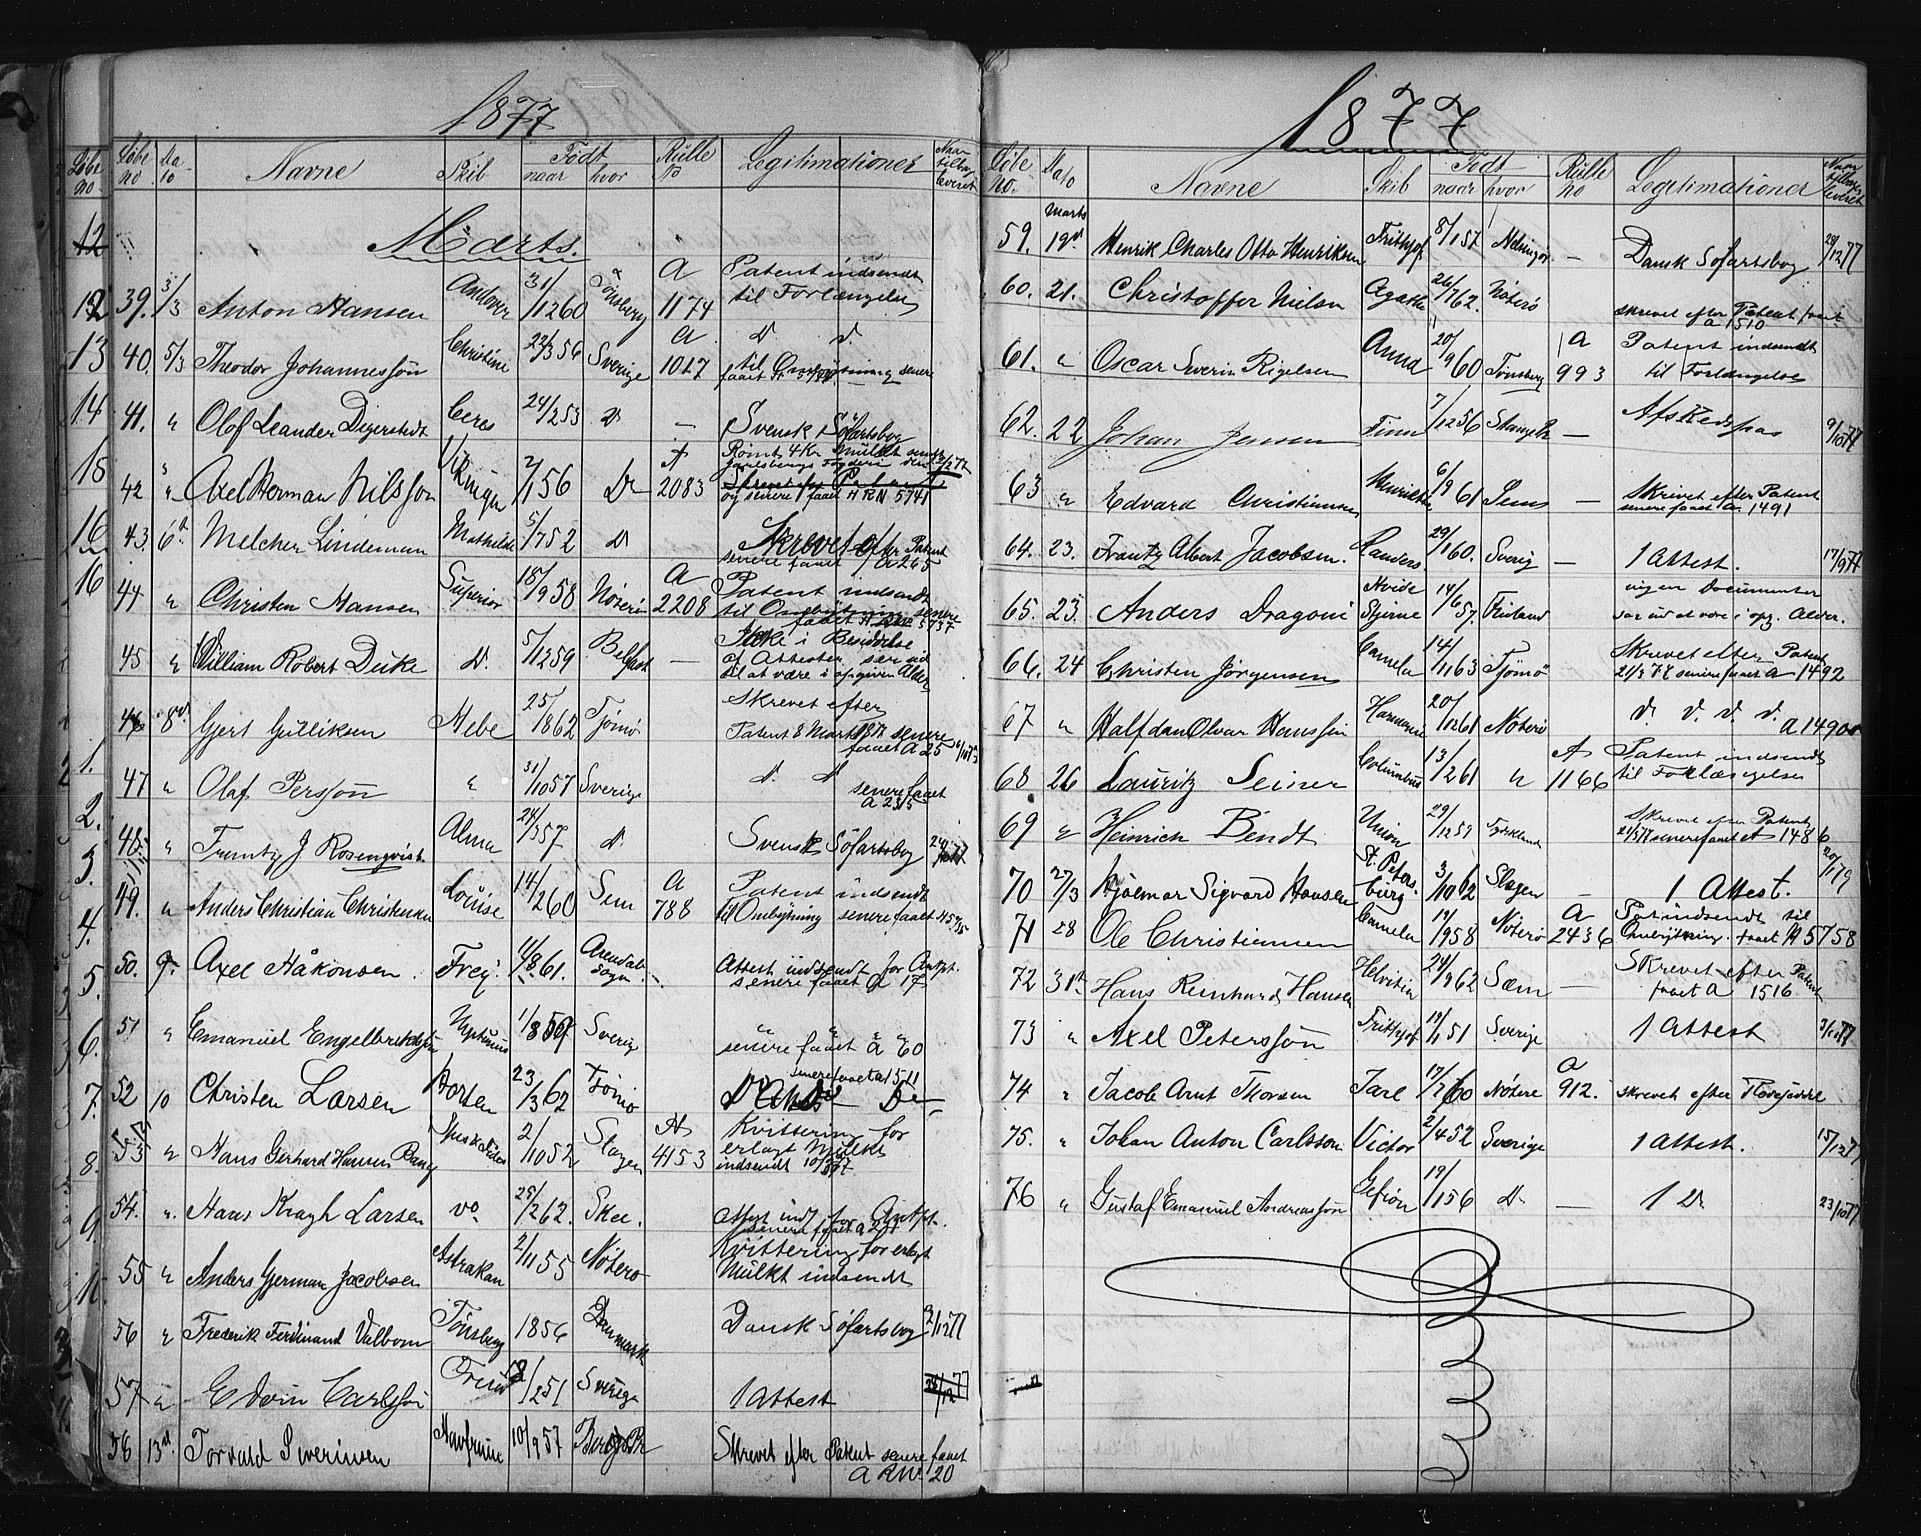 1877
Løbe no Dato Navne Skib Født naar hvor Rulle No Legitimationer Naar tilbageleveret
Marts.
12 39. 3/3 Anton Hansen Andover 31/12 60 Tønsberg A 1174 Patent indsendt
til Forlængelse
13 40. 5/3 Theodor Johannesson Christine 22/3 56 Sverige A 1017 d. d.
til Ombytning senere
14 41. " Olof Leander Digerstedt Ceres 24/2 53 d. — Svensk Søfartsbog
15 42 " Axel Herman Nilsson Vikingen 2/1 56 Do A 2083 Rømt 4 Kr Mulkt
Jarlsbergs Fogderi
Skrevet for Patent
og senere faaet A RN 5741
16 43. 6te Melcher Lindeman Mathilde 5/7 52 d. Skrevet efter Patent
senere faaet A 265
16 44 " Christen Hansen Superior 18/9 58 Nøterø A 2208 Patent indsendt
til Ombytning senere
faaet A RNo 5737
45 " William Robert Duke d. 5/12 59 Belfast — Ikke i Besiddelse
af Attester, ser ud
til at være i opgiven Alder
46 8de Gjert Gulliksen Hebe 25/18 62 Tjømø Skrevet efter
Patent 8 Marts 1877 senere
faaet A 25
47 " Olaf Persson " 31/10 57 Sverige d. d.
senere faaet
A 2315
48 " Frantz J Rosenqvist Alma 24/3 57 d. Svensk Søfartsbog
49. " Anders Christian Christensen Louise 14/2 60 Sem A 788 Patent indsendt
til Ombytning senere faaet
50. 9. Axel Håkonsen. Frey. 4/8 61. Arendals
Sogn. Attest indsendt for Antpt.
senere faaet A 17
51 " Emanuel Engelbrektsson Neptunus 1/8 59 Sverige " " "
senere faaet A 60
52 10 Christen Larsen Horten 23/3 62 Tjømø senere faaet A 1511
Do — Do
53 " Hans Gerhard Hansen Bang 2/10 52 Slagen A 4153 Kvittering for
erlagt Mulkt
indsendt
54. " Hans Kragh Larsen vo 25/2 62. Skee. Attest ind for Antpt.
senere faaet A 227
55 " Anders Gjerman Jacobsen Astrakan 2/11 55 Nøterø Kvittering for erlagt
Mulkt indsendt
56 " Frederik Ferdinand Valbom Tønsberg 1856 Danmark Dansk Søfartsbog 3/12 77
57 " Edvin Carlsson 2/2 51 Sverige 1 Attest
58 13de Torvald Severinsen Havfruen 10/9 57 Skrevet efter Patent senere faaet
A RNo 20
1877
Løbe no. Dato Navne Skib Født naar hvor Rulle no Legitimationer Naar tilbageleveret
Marts
59. 19de Henrik Charles Otto Henriksen Frithjof 8/1 57 Helsingør — Dansk Søfartsbog 29/12 77
60. 21. Christoffer Nielsen Agathe 26/7 62. Nøterø skrevet efter Patent faaet
A 1510
61. " Oscar Severin Rigelsen Anna 20/9 60 Tønsberg A 993 Patent indsendt
til Forlængelse
62. 22 Johan Jensen Finn 7/12 56 — Afskedspas 9/10 77
63 " Edvard Christiansen Henriette 6/9 61 Sem Skrevet efter Patent
senere faaet A. 1491
64. 23. Frantz Albert Jacobsen. Sanders. 29/1 60. Sverig — 1 Attest. 17/9 77
65. 23. Anders Dragoni Hvide
Stjerne 14/6 57. Finland ingen Documenter
saa ud at være i opg. Alder.
66. 24 Christen Jørgensen Camela 14/11 63 Tjømø Skrevet efter Patent
21/3 77 senere faaet A 1492
67 " Halfdan Olvar Hanssen Harmonie 20/12 61 Nøterø d. d. d. d.
A 1490
68 26 Lauritz Seiner Columbus 13/2 61 " A 1166 Patent indsendt
til Forlængelse
69 " Heinrich Bendt Union 29/12 59 Skrevet efter Patent
21/3 77 senere faaet A 1486
70 27/3 Hjalmar Sigvard Hansen St. Peters-
burg 3/10 62 Slagen — 1 Attest. 20/1 79
71 28 Ole Christiansen Camela 19/9 58 Nøterø A 2436 Pat indsendt til
Ombytning. faaet A 5758
72 31te Hans Reinhard Hansen Helvitia 24/9 62 Sæm — Skrevet efter Patent
faaet A 1516
73 " Axel Petersson Frithjof 19/1 51 Sverige 1 Attest
74 " Jacob Arnt Thorsen Jarl 17/7 60 Nøterø A 912. skrevet efter
75. " Johan Anton Carlsson Victor 2/4 52 Sverige 1 Attest. 15/12 77
76 " Gustaf Emanuel Andreasson Gefion 19/1 56 Do 1 Do 23/10 77